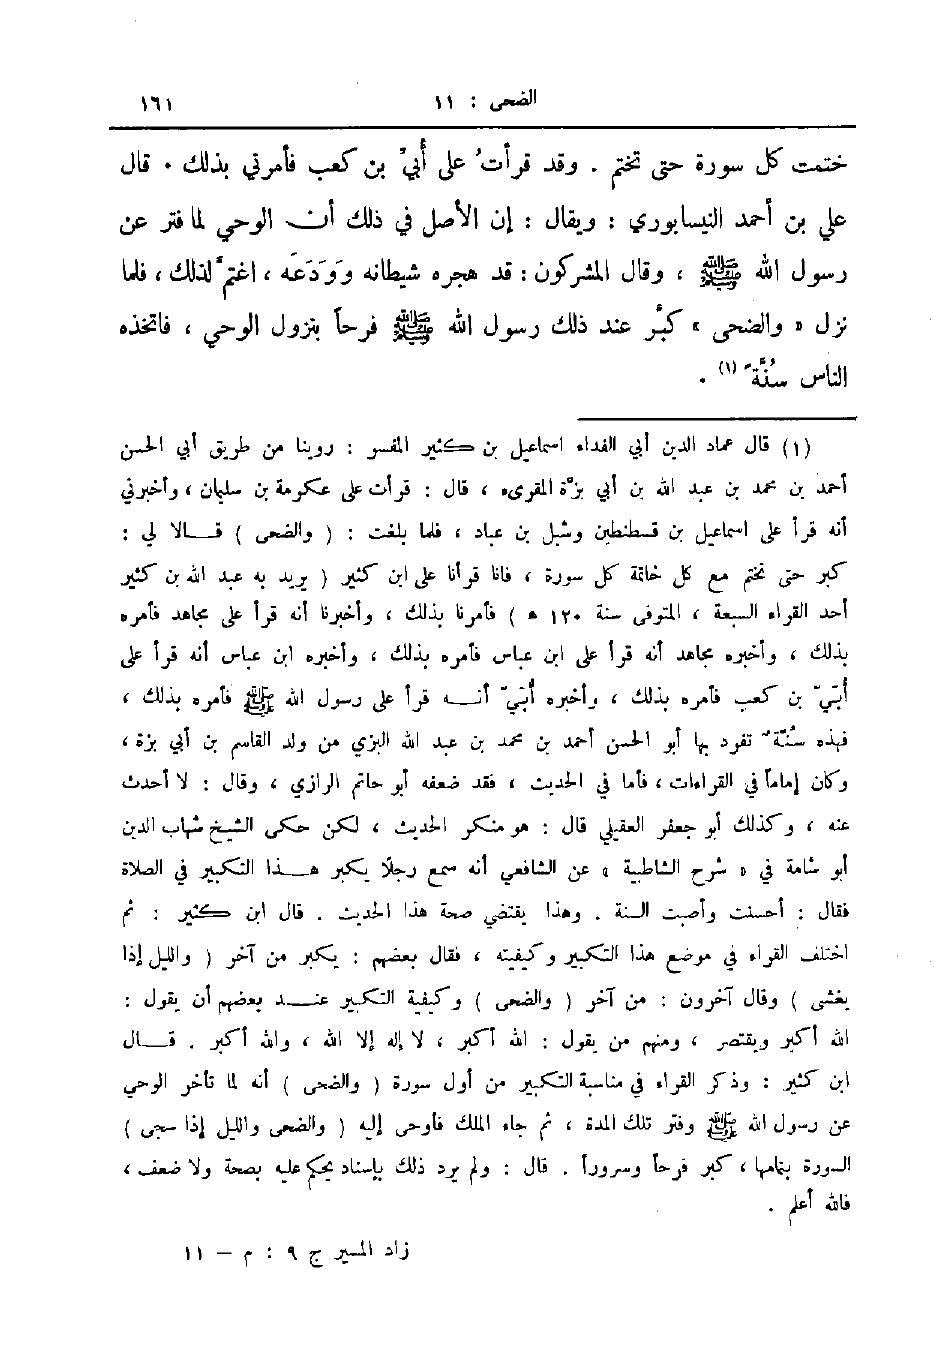 الضحى : ١١ ١٦١
ختمت كل سورة حتى تختم . وقد قرأت ُ على أُبيّ بن كعب فأمرني بذلك . قال
علي بن أحمد النيسابوري : ويقال : إن الأصل في ذلك أن الوحي لما فتر عن
رسول الله ﷺ ، وقال المشركون : قد هجره شيطانه وَوَدَعَه ، اغتمَّ لذلك ، فلما
نزل « والضحى » كبَّر عند ذلك رسول الله ﷺ فرحاً بنزول الوحي ، فاتخذه
الناس سُنَّةً (١) .
(١) قال عماد الدين أبي الفداء اسماعيل بن كثير المفسر : روينا من طريق أبي الحسن
أحمد بن محمد بن عبد الله بن أبي بزَّة المقرىء ، قال : قرأت على عكرمة بن سليمان ، وأخبرني
أنه قرأ على اسماعيل بن قسطنطين وشبل بن عباد ، فلما بلغت : ( والضحى ) قـــالا لي :
كبر حتى تختم مع كل خاتمة كل سورة ، فانا قرأنا على ابن كثير ( يريد به عبد الله بن كثير
أحد القراء السبعة ، المتوفى سنة ١٢٠ ه ) فأمرنا بذلك ، وأخبرنا أنه قرأ على مجاهد فأمره
بذلك ، وأخبره مجاهد أنه قرأ على ابن عباس فأمره بذلك ، وأخبره ابن عباس أنه قرأ على
أُبَيّ بن كعب فأمره بذلك ، وأخبره أُبَيّ أنـــه قرأ على رسول الله ﷺ فأمره بذلك ،
فهذه سُنَّة تفرد بها أبو الحسن أحمد بن محمد بن عبد الله البزي من ولد القاسم بن أبي بزة ،
وكان إماماً في القراءات ، فأما في الحديث ، فقد ضعفه أبو حاتم الرازي ، وقال : لا أحدث
عنه ، وكذلك أبو جعفر العقيلي قال : هو منكر الحديث ، لكن حكى الشيخ شهاب الدين
أبو شامة في « شرح الشاطبية » عن الشافعي أنه سمع رجلاً يكبر هـــذا التكبير في الصلاة
فقال : أحسنت وأصبت السنة . وهذا يقتضي صحة هذا الحديث . قال ابن كثير : ثم
اختلف القراء في موضع هذا التكبير وكيفيته ، فقال بعضهم : يكبر من آخر ( والليل إذا
يغشى ) وقال آخرون : من آخر ( والضحى ) وكيفية التكبير عنـــد بعضهم أن يقول :
الله أكبر ويقتصر ، ومنهم من يقول : الله أكبر ، لا إله إلا الله ، والله أكبر . قـــال
ابن كثير : وذكر القراء في مناسبة التكبير من أول سورة ( والضحى ) أنه لما تأخر الوحي
عن رسول الله ﷺ وفتر تلك المدة ، ثم جاء الملك فأوحى إليه ( والضحى والليل إذا سجى )
السورة بتمامها ، كبر فرحاً وسروراً . قال : ولم يرد ذلك بإسناد يحكم عليه بصحة ولا ضعف ،
فالله أعلم .
زاد المسير ج ٩ : م – ١١